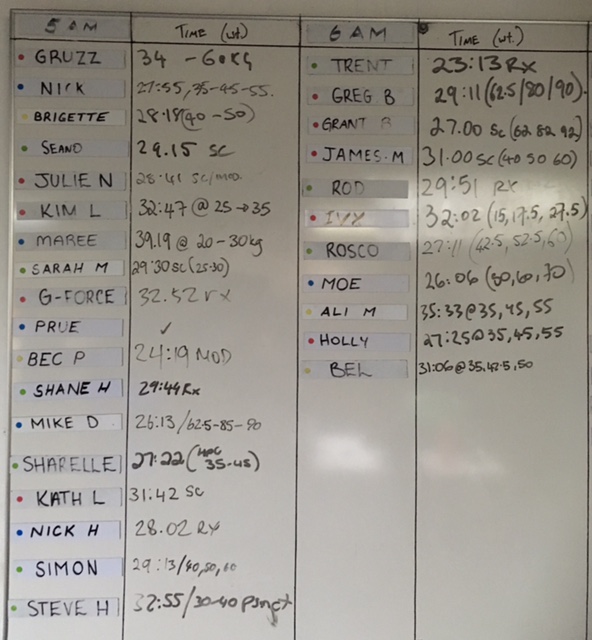 5 AM TIME (wt)
GRUZZ 34 - 60KG
NICK 27:55, 35-45-55.
BRIGETTE 28.18(40-50)
SEANO 29.15 SC
JULIE N 28:41 SC/mod
KIM L 32:47 @ 25→35
MAREE 39.19 @ 20-30kg
SARAH M 29'30 SC(25-30)
G-FORCE 32.52 rx
PRUE ✓
BEC P 24:19 MOD
SHANE H 29:44 Rx
MIKE D 26:13/62.5-85-90
SHARELLE 27:22 (35-45)
KATH L 31:42 SC
NICK H 28.02 RX
SIMON 29:13/40,50,60
STEVE H 32:55/30-40
6 AM TIME (wt.)
TRENT 23:13 Rx
GREG B 29:11 (62.5/80/90)
GRANT B 27.00 SC (62 82 92)
JAMES.M 31.00 SC (40 50 60)
ROD 29:51 RX
IVY 32:02 (15, 17.5, 27.5)
ROSCO 27:11 (42.5, 52.5, 60)
MOE 26:06 (50, 60, 70)
ALI M 35:33@35,45,55
HOLLY 27:25@35,45,55
BEL 31:06@35,42.5,50